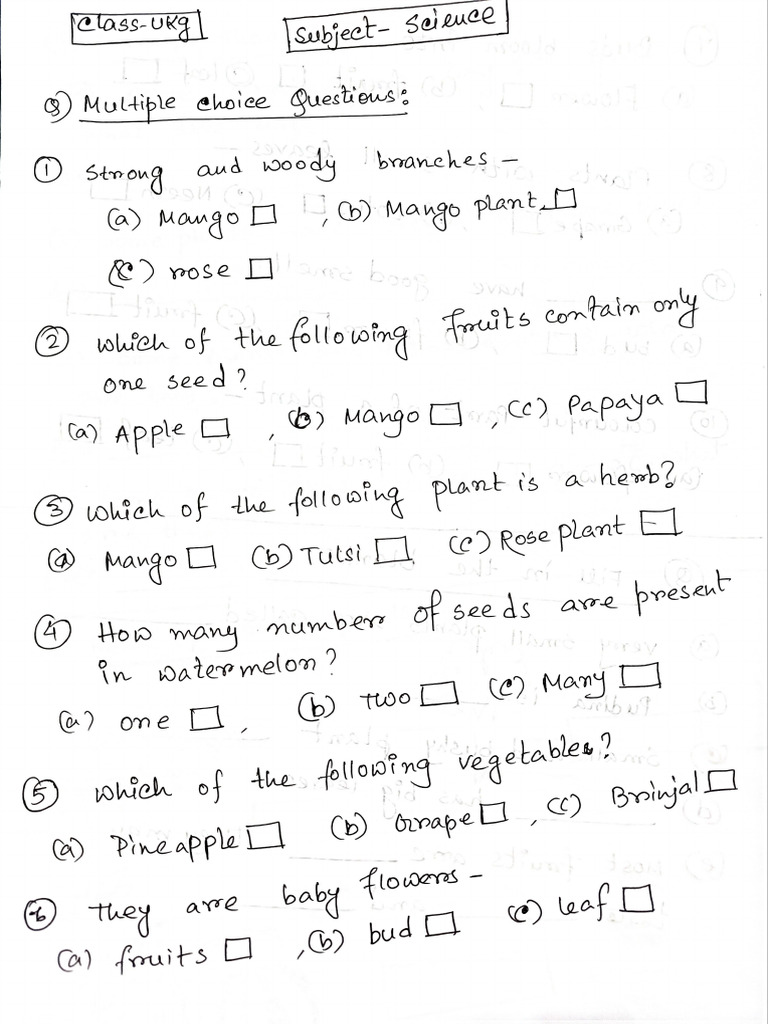 Class-UKg
Subject- Science
Q) Multiple choice Questions:
① Strong and woody branches –
(a) Mango □ , (b) Mango plant □
(c) rose □
② which of the following fruits contain only
one seed?
(a) Apple □ , (b) Mango □ , (c) Papaya □
③ which of the following plant is a herb?
(a) Mango □ (b) Tulsi □ (c) Rose plant □
④ How many number of seeds are present
in watermelon?
(a) one □ , (b) Two □ (c) Many □
⑤ which of the following vegetables?
(a) Pineapple □ (b) Grape □ , (c) Brinjal □
⑥ They are baby flowers –
(a) fruits □ , (b) bud □ (c) leaf □